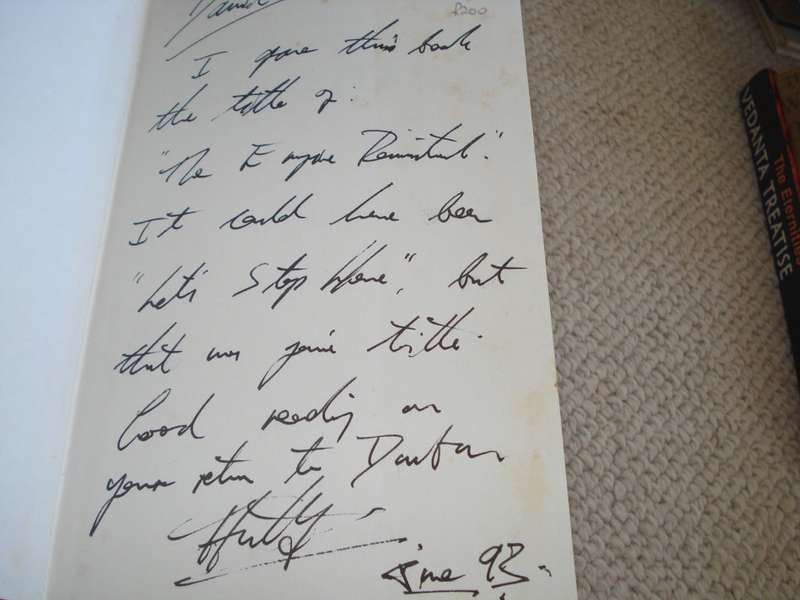 David
£200
I gave this book
the title of:
"The Empire
It could have been
"Let's Stop", but
that was your title.
Good reading on
your return to Durban
June 93
VEDANTA TREATISE
The Eternities